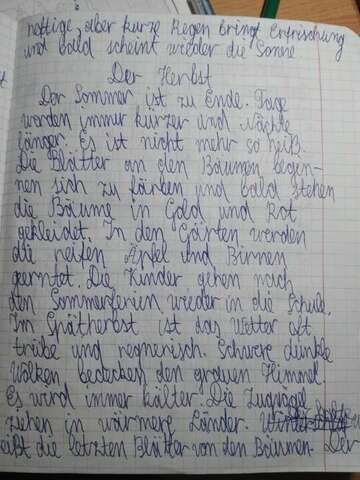 heftige, aber kurze Regen bringt Erfrischung
und bald scheint wieder die Sonne
Der Herbst
Der Sommer ist zu Ende. Tage
worden immer kurzer und Nächte
länger. Es ist nicht mehr so heiß.
Die Blätter an den Bäumen begin-
nen sich zu färben und bald stehen
die Bäume in Gold und Rot
gekleidet. In den Gärten werden
die reifen Äpfel und Birnen
gerntet. Die Kinder gehen nach
den Sommerferien wieder in die Schule.
Im Spätherbst ist das Wetter oft
trübe und regnerisch. Schwere dunkle
Wolken bedecken den grauen Himmel.
Es wird immer kälter. Die Zugvögel
ziehen in wärmere Länder.
eißt die letzten Blätter von den Bäumen. Der